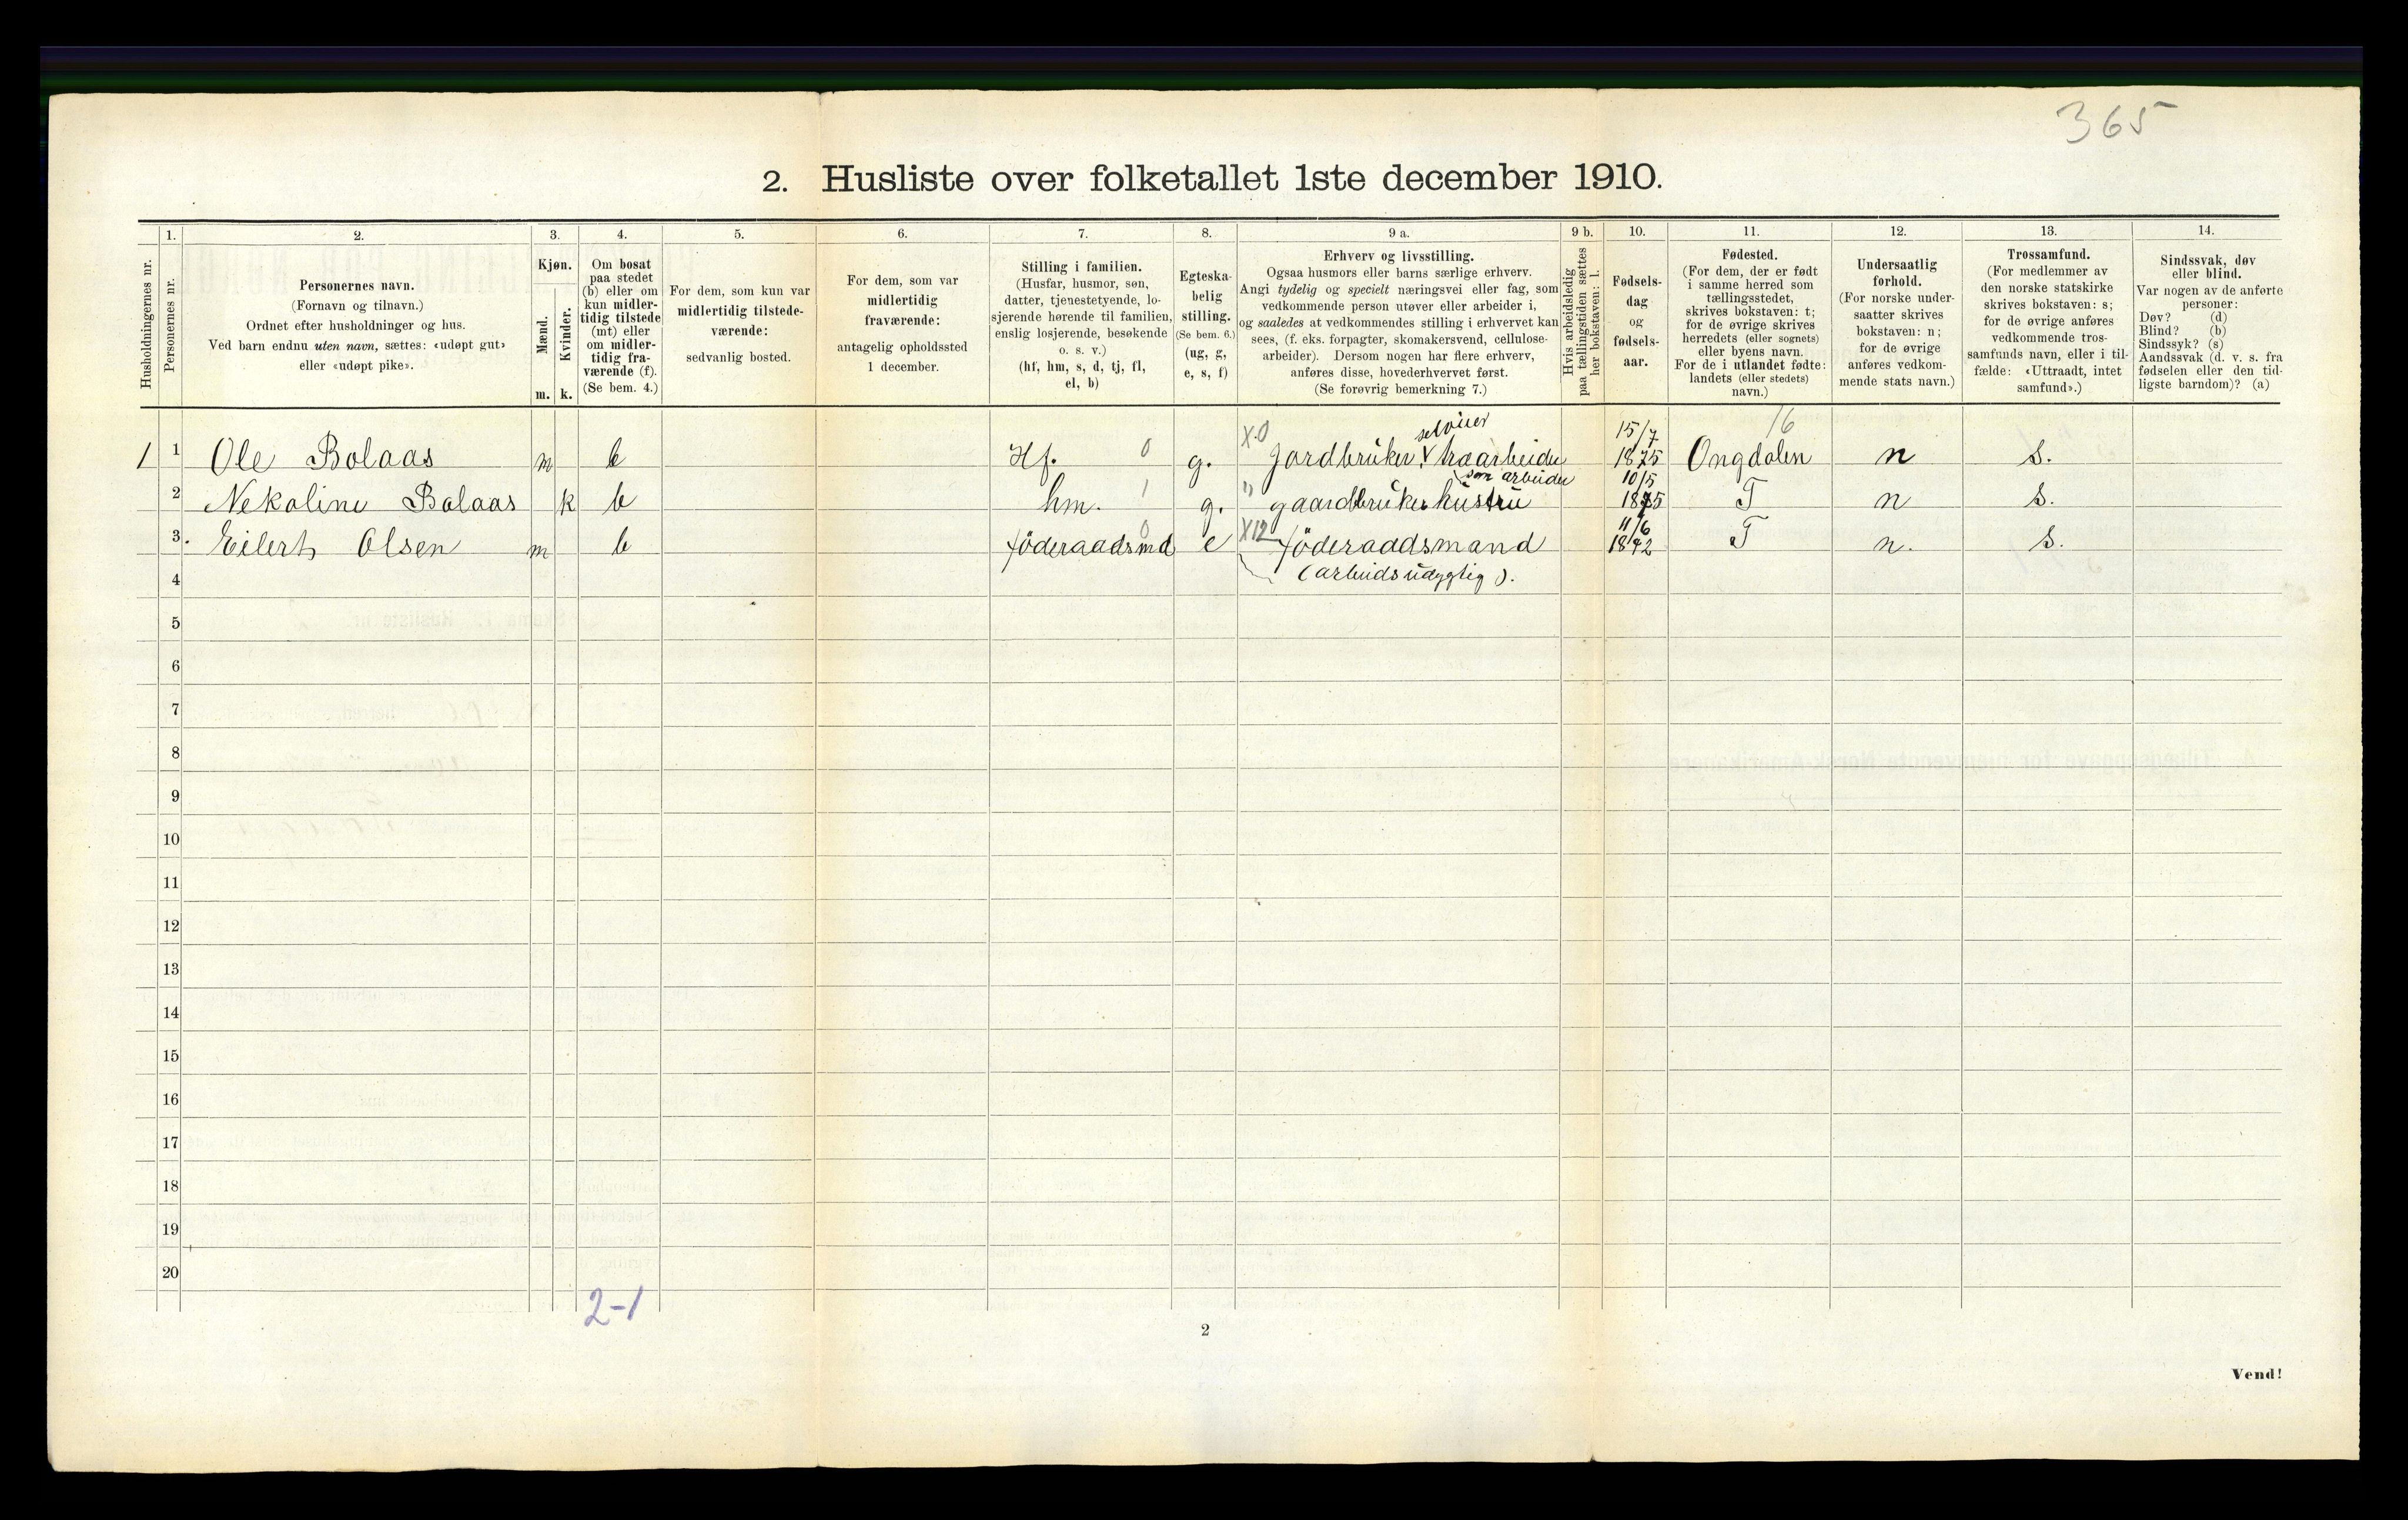 365
2. Husliste over folketallet 1ste december 1910.
Husholdningernes nr.
1.
Personernes nr.
2.
Personernes navn.
(Fornavn og tilnavn.)
Ordnet efter husholdninger og hus.
Ved barn endnu uten navn, sættes: «udøpt gut»
eller «udøpt pike».
3.
Kjøn.
Mænd.
Kvinder.
m. k.
4.
Om bosat
paa stedet
(b) eller om
kun midler-
tidig tilstede
(mt) eller
om midler-
tidig fra-
værende (f).
(Se bem. 4.)
5.
For dem, som kun var
midlertidig tilstede-
værende:
sedvanlig bosted.
6.
For dem, som var
midlertidig
fraværende:
antagelig opholdssted
1 december.
7.
Stilling i familien.
(Husfar, husmor, søn,
datter, tjenestetyende, lo-
sjerende hørende til familien,
enslig losjerende, besøkende
o. s. v.)
(hf, hm, s, d, tj, fl,
el, b)
8.
Egteska-
belig
stilling.
(Se bem. 6.)
(ug, g,
e, s, f)
9 a.
Erhverv og livsstilling.
Ogsaa husmors eller barns særlige erhverv.
Angi tydelig og specielt næringsvei eller fag, som
vedkommende person utøver eller arbeider i,
og saaledes at vedkommendes stilling i erhvervet kan
sees, (f. eks. forpagter, skomakersvend, cellulose-
arbeider). Dersom nogen har flere erhverv,
anføres disse, hovederhvervet først.
(Se forøvrig bemerkning 7.)
9 b.
Hvis arbeidsledig
paa tællingstiden sættes
her bokstaven: l.
10.
Fødsels-
dag
og
fødsels-
aar.
11.
Fødested.
(For dem, der er født
i samme herred som
tællingsstedet,
skrives bokstaven: t;
for de øvrige skrives
herredets (eller sognets)
eller byens navn.
For de i utlandet fødte:
landets (eller stedets)
navn.)
12.
Undersaatlig
forhold.
(For norske under-
saatter skrives
bokstaven: n;
for de øvrige
anføres vedkom-
mende stats navn.)
13.
Trossamfund.
(For medlemmer av
den norske statskirke
skrives bokstaven: s;
for de øvrige anføres
vedkommende tros-
samfunds navn, eller i til-
fælde: «Uttraadt, intet
samfund».)
14.
Sindssvak, døv
eller blind.
Var nogen av de anførte
personer:
Døv? (d)
Blind? (b)
Sindssyk? (s)
Aandssvak (d. v. s. fra
fødselen eller den tid-
ligste barndom)? (a)
X.0 selveier 15/7 16
1 1 Ole Bolaas m b Hf. 0 g. Jordbruker, traarbeider 1875 Ongdalen n s.
som arbeider 10/5
2 Nekoline Bolaas k b hm. 1 g. " gaardbruker hustru 1875 T n s.
0 X12 11/6
3. Eilert Olsen m b föderaadsmd e föderaadsmand 1842 T n. s.
4 (arbeidsudygtig).
5
6
7
8
9
10
11
12
13
14
15
16
17
18
19
20
2-1
2
Vend!